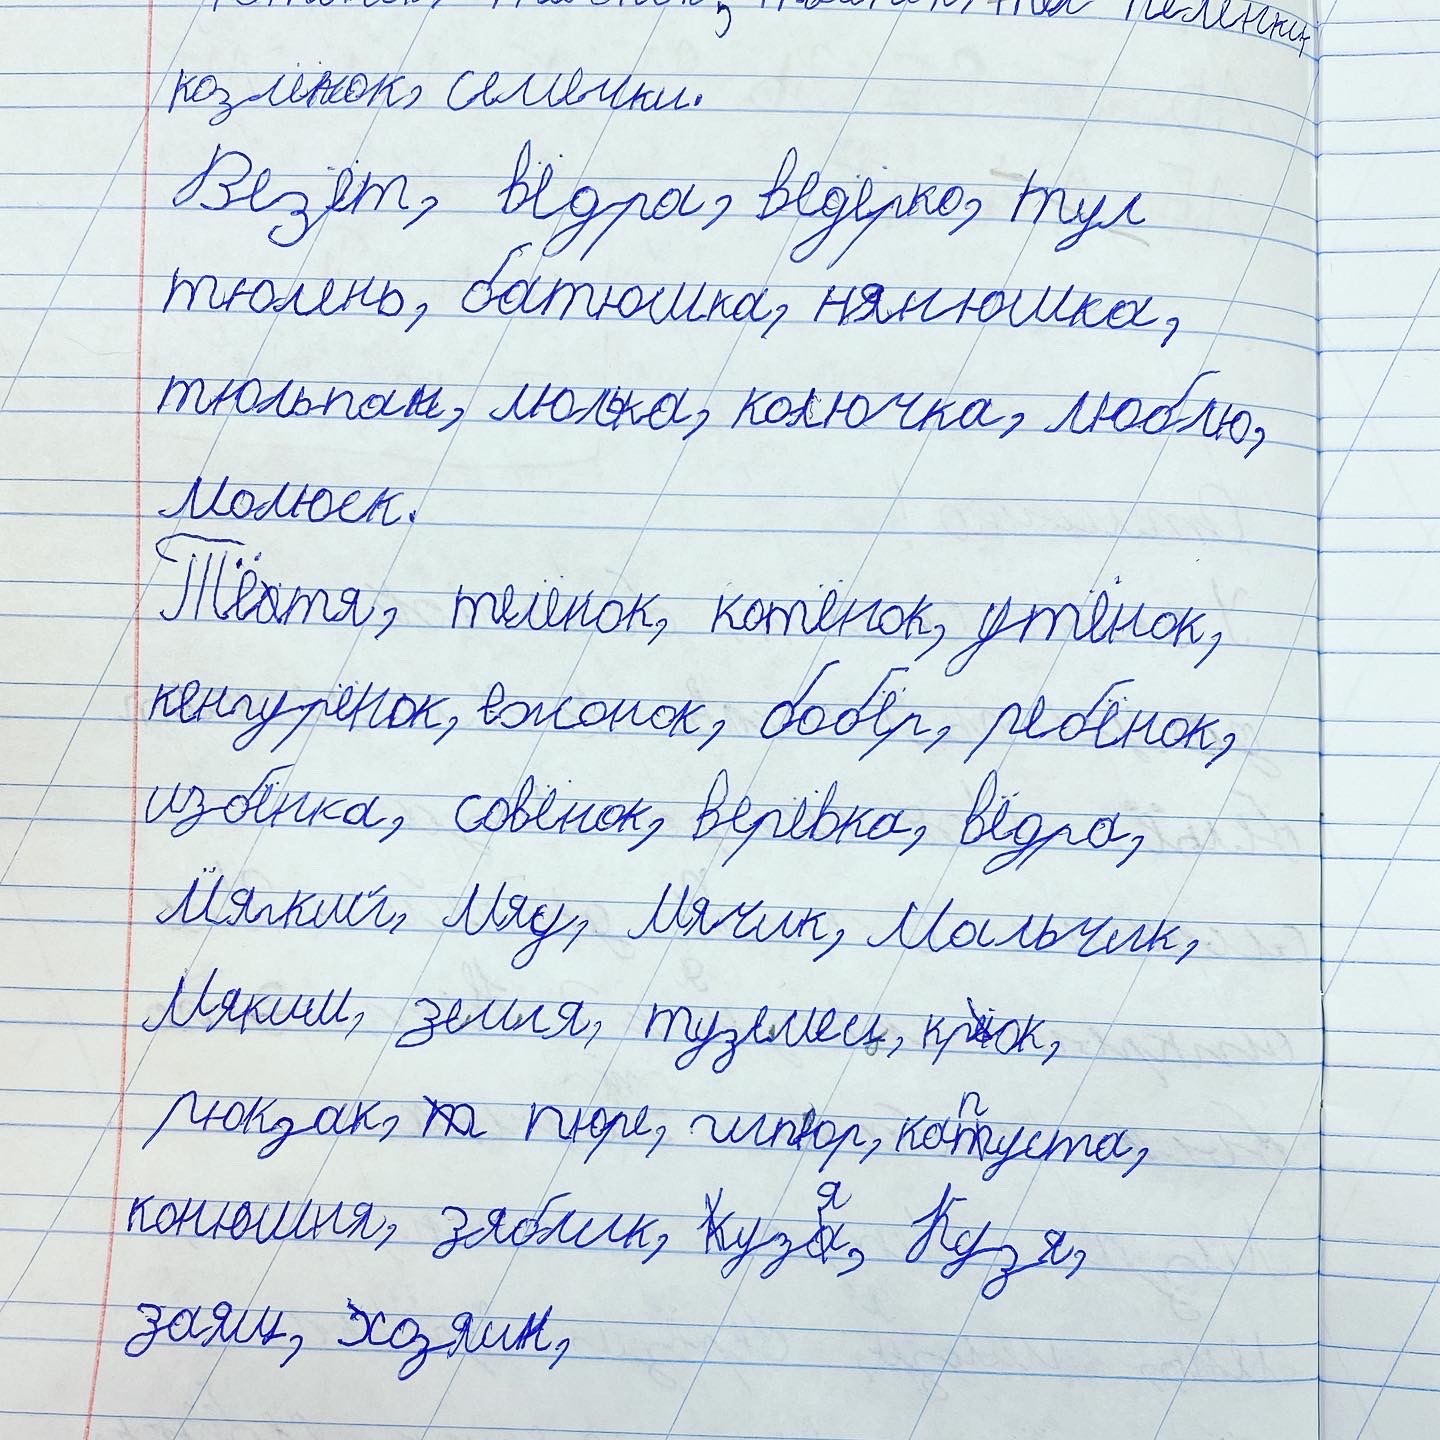 пелёнки,
козлёнок, семечки.
Везёт, вёдра, ведёрко, тул
тюлень, батюшка, нянюшка,
тюльпан, люлька, колючка, люблю,
молюск.
Тётя, телёнок, котёнок, утёнок,
кенгурёнок, ежонок, бобёр, ребёнок,
избёнка, совёнок, верёвка, вёдра,
Мягкий, Мяу, Мячик, Мальчик,
Мякиш, земля, туземец, крюк,
рюкзак, пюре, гипюр, капуста,
конюшня, зяблик, Кузя, Кузя,
заяц, хозяин,